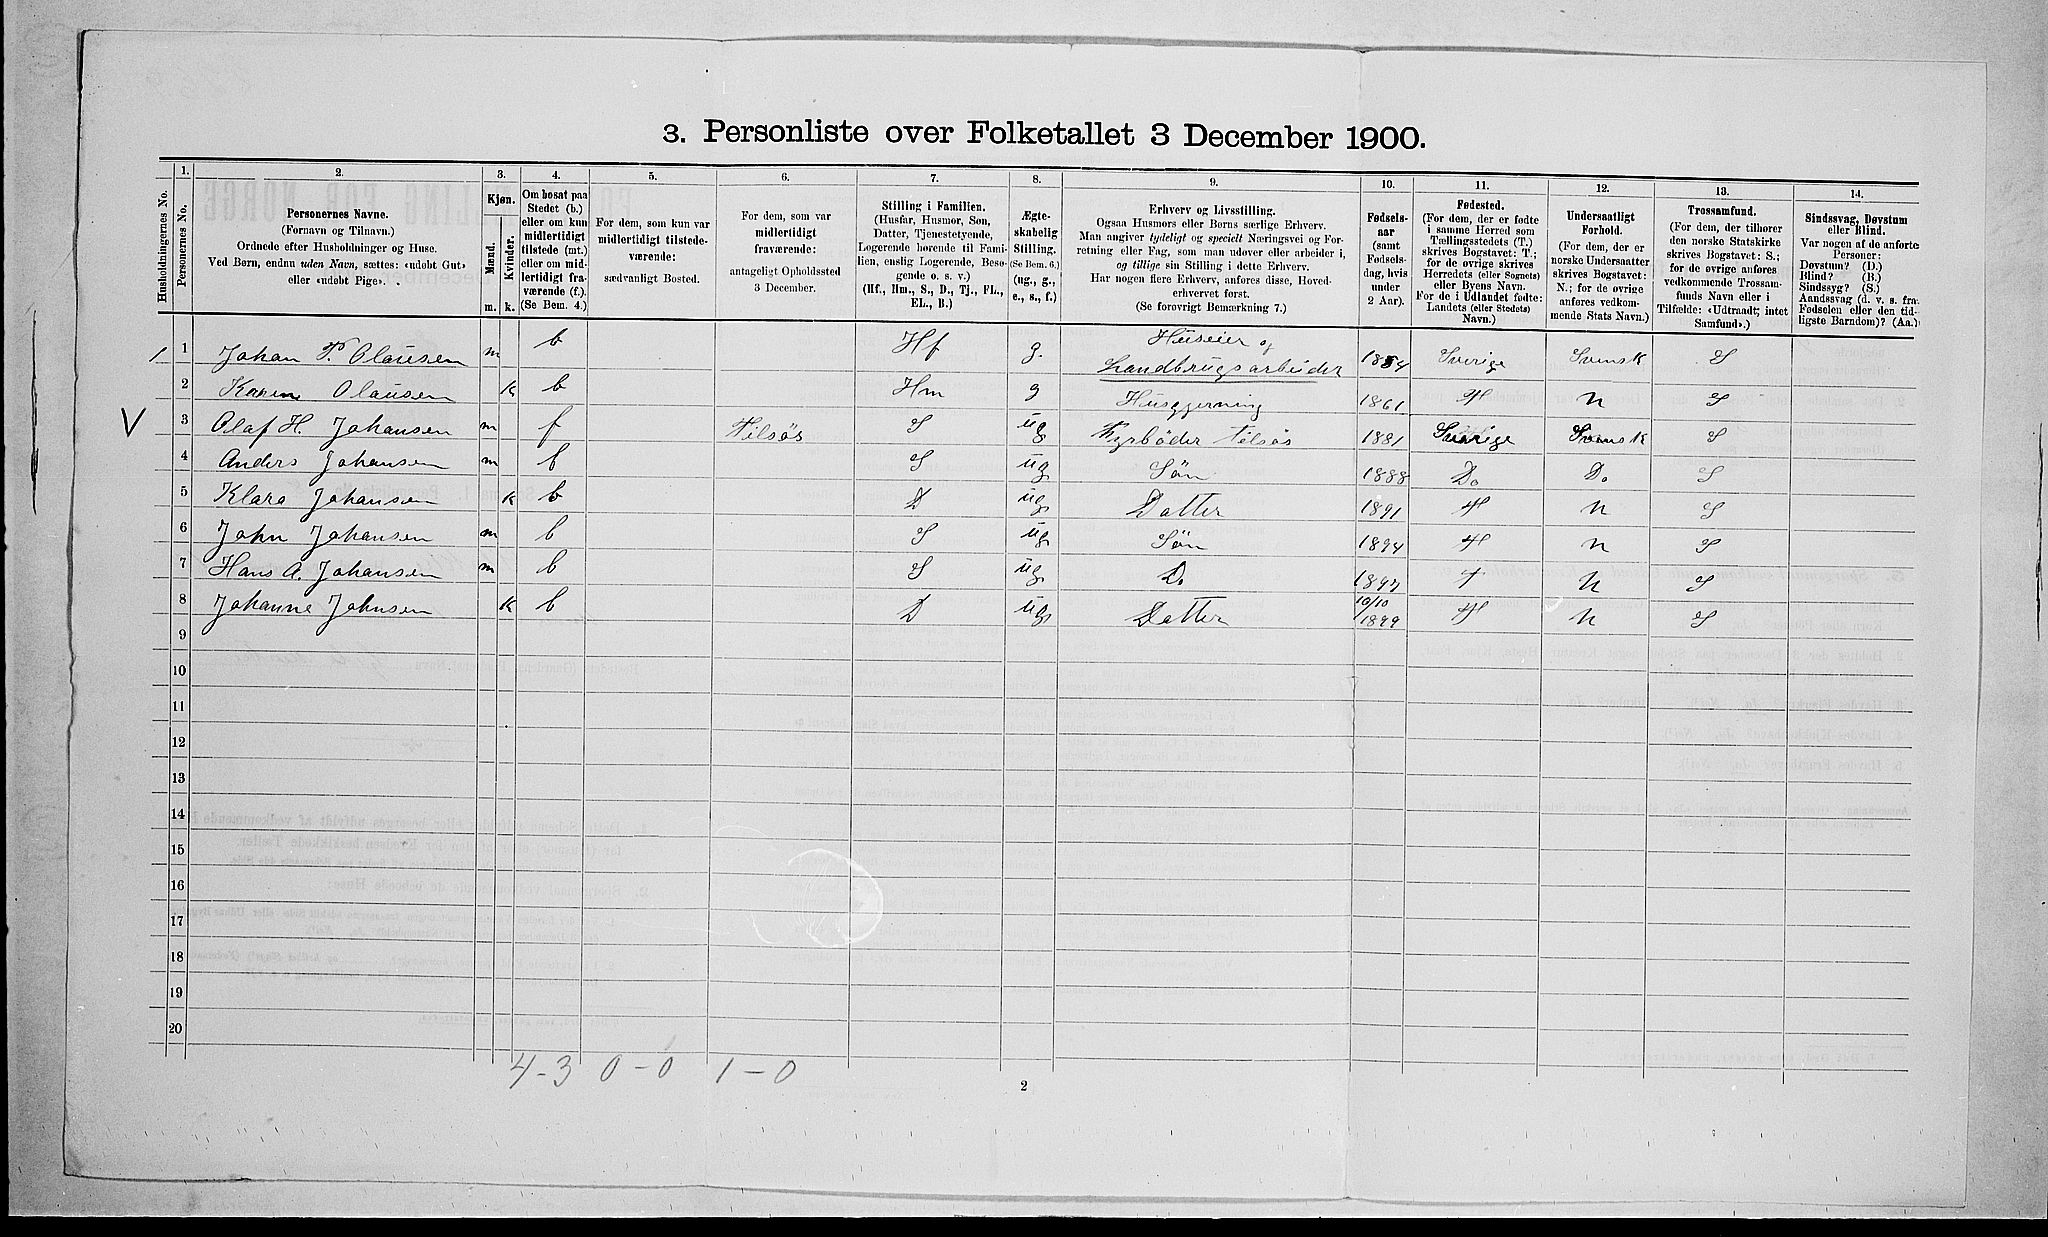 3. Personliste over Folketallet 3 December 1900.
Husholdningernes No.
1. Personernes No.
2.
Personernes Navne.
(Fornavn og Tilnavn.)
Ordnede efter Husholdninger og Huse.
Ved Børn, endnu uden Navn, sættes: «udøbt Gut»
eller «udøbt Pige».
3.
Kjøn.
Mænd. m.
Kvinder. k.
4.
Om bosat paa
Stedet (b.)
eller om kun
midlertidigt
tilstede (mt.)
eller om mid-
lertidigt fra-
værende (f.)
(Se Bem. 4.)
5.
For dem, som kun var
midlertidigt tilstede-
værende:
sædvanligt Bosted.
6.
For dem, som var
midlertidigt
fraværende:
antageligt Opholdssted
3 December.
7.
Stilling i Familien.
(Husfar, Husmor, Søn,
Datter, Tjenestetyende,
Logerende hørende til Fami-
lien, enslig Logerende, Besø-
gende o. s. v.)
(Hf., Hm., S., D., Tj., FL.,
EL., B.)
8.
Ægte-
skabelig
Stilling.
(Se Bem. 6.)
(ug., g.,
e., s., f.)
9.
Erhverv og Livsstilling.
Ogsaa Husmors eller Børns særlige Erhverv.
Man angiver tydeligt og specielt Næringsvei og For-
retning eller Fag, som man udøver eller arbeider i,
og tillige sin Stilling i dette Erhverv.
Har nogen flere Erhverv, anføres disse, Hoved-
erhvervet først.
(Se forøvrigt Bemærkning 7.)
10.
Fødsels-
aar
(samt
Fødsels-
dag, hvis
under
2 Aar).
11.
Fødested.
(For dem, der er fødte
i samme Herred som
Tællingsstedets (T.)
skrives Bogstavet: T.;
for de øvrige skrives
Herredets (eller Sognets)
eller Byens Navn.
For de i Udlandet fødte:
Landets (eller Stedets)
Navn.)
12.
Undersaatligt
Forhold.
(For dem, der er
norske Undersaatter
skrives Bogstavet:
N.; for de øvrige
anføres vedkom-
mende Stats Navn.)
13.
Trossamfund.
(For dem, der tilhører
den norske Statskirke
skrives Bogstavet: S.;
for de øvrige anføres
vedkommende Trossam-
funds Navn eller i
Tilfælde: «Udtraadt, intet
Samfund».)
14.
Sindssvag, Døvstum
eller Blind.
Var nogen af de anførte
Personer:
Døvstum? (D.)
Blind? (B.)
Sindssyg? (S.)
Aandssvag (d. v. s. fra
Fødselen eller den tid-
ligste Barndom)? (Aa.)
1 1 Johan P. Olausen m b Hf g. Huseier og Landbrugsarbeider 1854 Sverige Svensk S
2 Karen Olausen k b Hm g Husgjerning 1861 T N S
V 3 Olaf H. Johansen m f Tilsøs S ug Fyrbøder tilsøs 1881 Sverige Svensk S
4 Anders Johansen m b S ug Søn 1888 Do Do S
5 Klara Johansen k b D ug Datter 1891 T N S
6 John Johansen m b S ug Søn 1894 T N S
7 Hans A. Johansen m b S ug Do 1897 T N S
8 Johanne Johnsen k b D ug Datter 10/10 1899 T N S
9
10
11
12
13
14
15
16
17
18
19
20
4-3 0-0 1-0
2